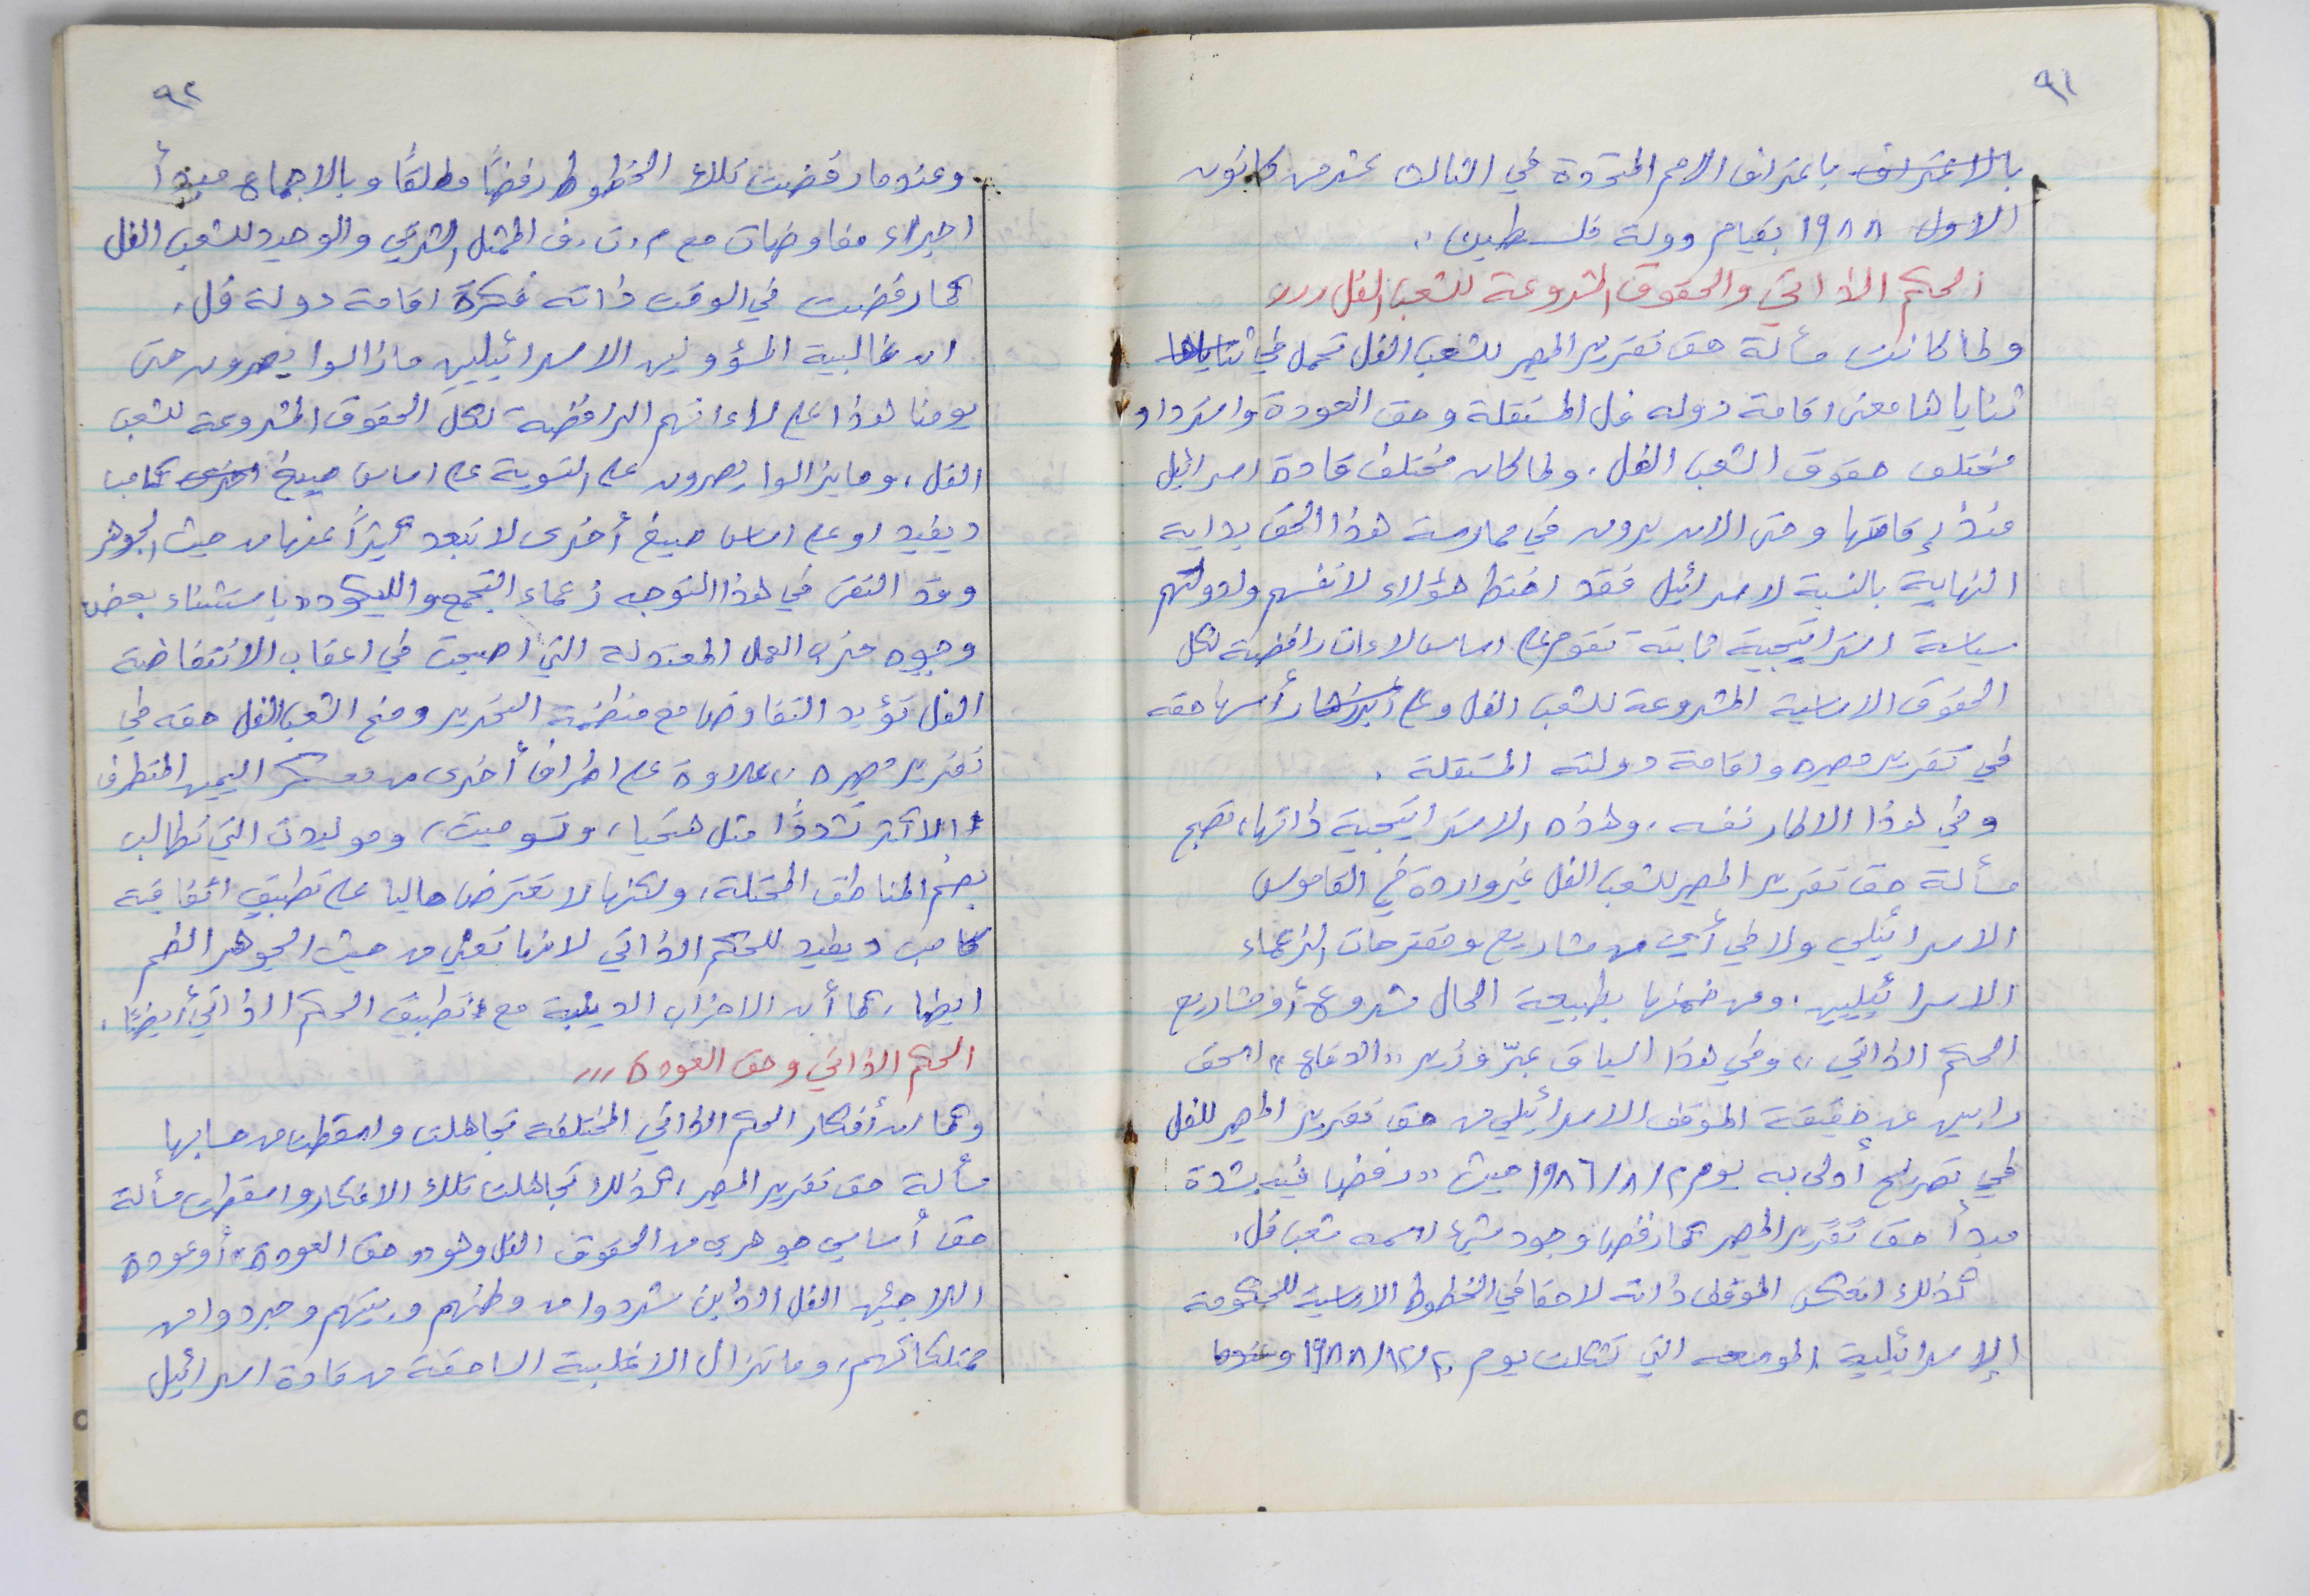 ٩١
بالاعتراف باعتراف الامم المتحدة في الثالث عشر من كانون
الاول ١٩٨٨ بقيام دولة فلسطين".
الحكم الذاتي والحقوق المشروعة للشعب الفل ...
ولما كانت مسألة حق تقرير المصير للشعب الفل تحمل في ثناياها
ثناياها معنى اقامة دوله فل المستقلة وحق العودة واسترداد
مختلف حقوق الشعب الفل. ولما كان مختلف قادة اسرائيل
منذ إقامتها وحتى الان يرون في ممارسة هذا الحق بداية
النهاية بالنسبة لاسرائيل فقد اختط هؤلاء لانفسهم ولدولتهم
سياسة استراتيجية ثابتة تقوم على اساس لاءات رافضة لكل
الحقوق الاساسية المشروعة للشعب الفل وعلى رأسها حقه
في تقرير مصيره واقامة دولته المستقلة .
وفي هذا الاطار نفسه، وهذه الاستراتيجية ذاتها، تصبح
مسألة حق تقرير المصير للشعب الفل غير واردة في القاموس
الاسرائيلي ولا في أي من مشاريع ومقترحات الزعماء
الاسرائيليين، ومن ضمنها بطبيعة الحال مشروع أو مشاريع
الحكم الذاتي"، وفي هذا السياق عبّر وزير "الدفاع" اسحق
رابين عن حقيقة الموقف الاسرائيلي من حق تقرير المصير للفل
في تصريح أدلى به يوم ١٩٨٦/٨/٢ حيث "رفض فيه بشدة
مبدأ حق تقرير المصير كما رفض وجود شيء اسمه شعب فل.
كذلك انعكس الموقف ذاته لاحقا في الخطوط الاساسية للحكومة
الإسرائيلية الموسعه التي تشكلت يوم ١٩٨٨/١٢/٢٠ وعندما
٩٢
وعندما رفضت تلك الخطوط رفضًا مطلقًا وبالاجماع مبدأ
اجراء مفاوضات مع م.ت.ف الممثل الشرعي والوحيد للشعب الفل
كما رفضت في الوقت ذاته فكرة اقامة دولة فل.
ان غالبية المسؤولين الاسرائيليين ما زالوا يصرون حتى
يومنا هذا على لاءاتهم الرافضة لكل الحقوق المشروعة للشعب
الفل، وما يزالوا يصرون على التسوية على اساس صيغ اخرى كامب
ديفيد او على اساس صيغ أخرى لا تبعد كثيرًا عنها من حيث الجوهر
وقد التقى في هذا التوجه زعماء التجمع والليكود "باستثناء بعض
وجوه حزب العمل المعتدله التي اصبحت في اعقاب الانتفاضة
الفل تؤيد التفاوض مع منظمة التحرير ومنح الشعب الفل حقه في
تقرير مصيره"، علاوة على اطراف أخرى من معسكر اليمين المتطرف
الاكثر تشددًا مثل هتحيا، وتسوميت، وموليدت التي تطالب
بضم المناطق المحتلة، ولكنها لا تعترض حاليا على تطبيق اتفاقية
كامب ديفيد للحكم الذاتي لانها تعني من حيث الجوهر الضم
ايضا، كما أن الاحزاب الدينية مع تطبيق الحكم الذاتي أيضًا.
الحكم الذاتي وحق العودة ...
وكما ان أفكار الحكم الذاتي المختلفة تجاهلت واسقطت من حسابها
مسألة حق تقرير المصير، كذلك تجاهلت تلك الافكار واسقطت مسألة
حق أساسي جوهري من الحقوق الفل وهو "حق العودة" أو عودة
اللاجئين الفل الذين شردوا من وطنهم وبيتهم وجردوا من
ممتلكاتهم، وما تزال الاغلبية الساحقة من قادة اسرائيل